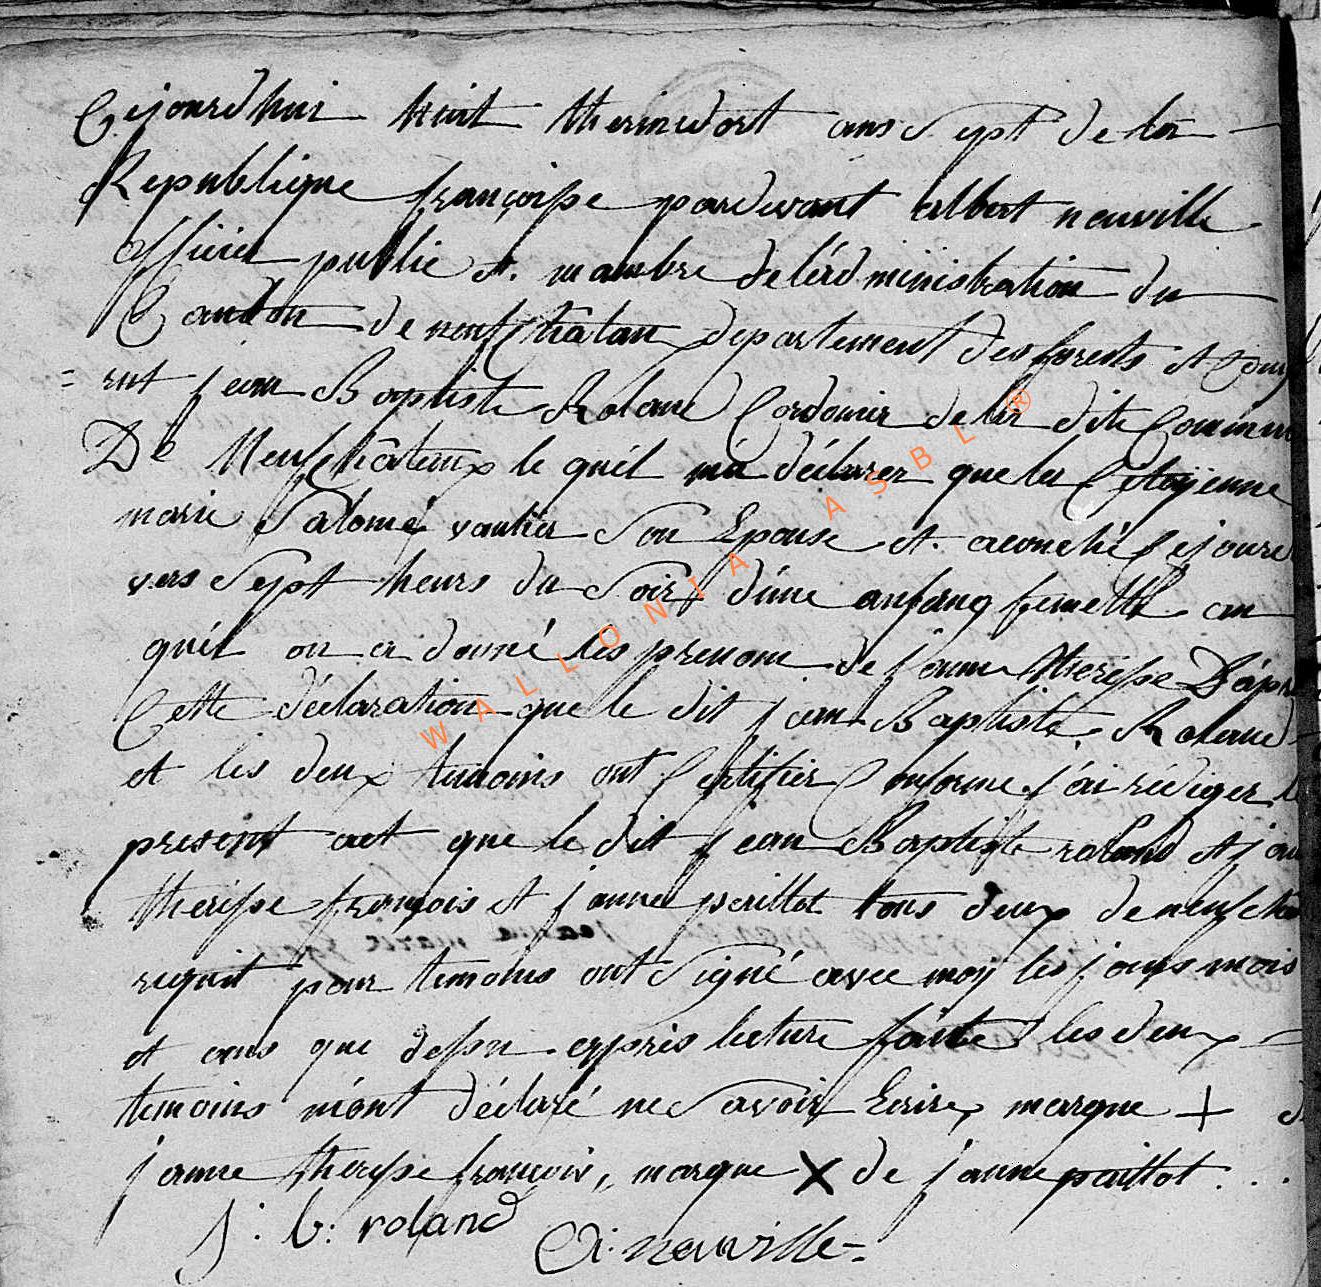 Cejourdhuit huit thermidort ans sept de la
Republique françoisse pardevant albert neuville
officier public et mambre de l'administration du
Canton de neufchâtau departement des forests et Comp
= rut jean Baptiste Roland Cordonier de la dite Commun
De Neufchâteaux le quél ma déclarer que la Citoÿenne
marie Salomé vautier Son Epouse et acouché Cejourd
vers Sept heurs du Soir d'une anfanq femelle au
quél on a donné les prenom de janne theresse D'après
Cette déclaration que le dit jean Baptiste Roland
et les deux temoins ont Certifier Conforme j'ai rédiger le
present act que le dit jean Baptiste roland et jan
theresse françois et janne perillot tous deux de neufcha
requit pour temoins ont Signé avec moÿ les jours mois
et ans que dessu appres lecture faite les deux
temoins m'ont déclaré ne Savoir Ecrire, marque +
janne theresse françois, marque X de janne paillot ...
j: b: roland A: neuville =
WALLONIA ASBL ®